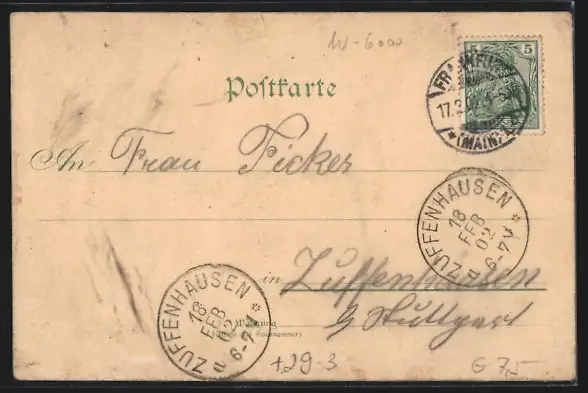 W-6000
5 5
Postkarte
FRANKFURT
17.2.02
* (MAIN)
An Frau Picker
ZUFFENHAUSEN *
18
FEB
02
6-7V
d
in Zuffenhausen
b/ Stuttgart
ZUFFENHAUSEN *
18
FEB
02
6-7V
d
Wohnung
(Strasse u. Hausnummer)
+29-3
G 7,5